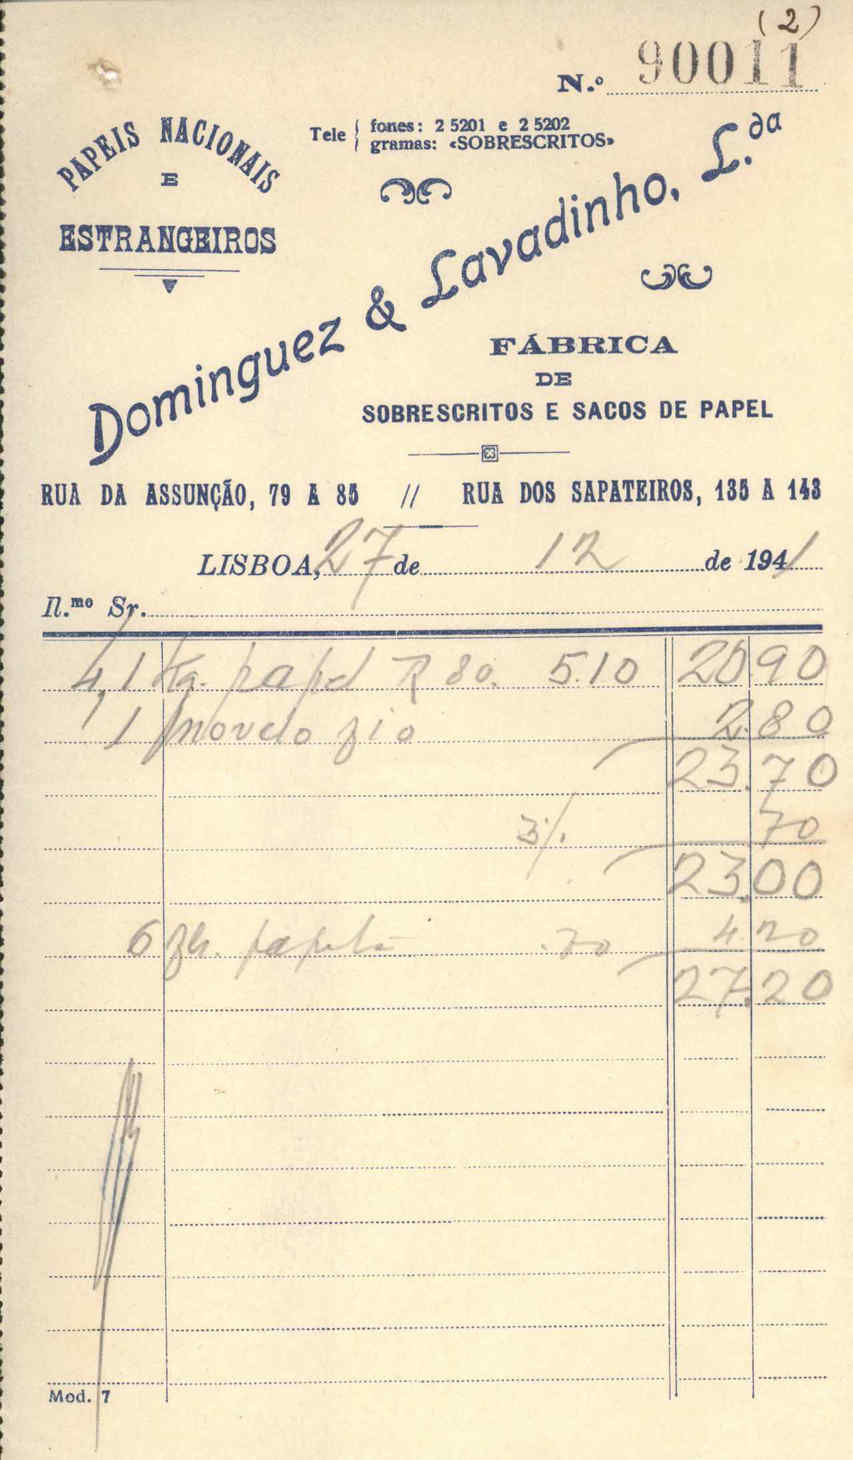 (2)
N.º 90011
PAPEIS NACIONAIS
E
ESTRANGEIROS
Tele { fones: 2 5201 e 2 5202
gramas: «SOBRESCRITOS»
Dominguez & Lavadinho, L.da
FÁBRICA
DE
SOBRESCRITOS E SACOS DE PAPEL
RUA DA ASSUNÇÃO, 79 A 85 // RUA DOS SAPATEIROS, 135 A 143
LISBOA, 27 de 12 de 1941
Il.mo Sr.
4,1 Kg. papel R 80. 5.10 20.90
1 novelo fio 2.80
23.70
3% 70
23.00
6 fls. .70 4.20
27.20
Mod. 7